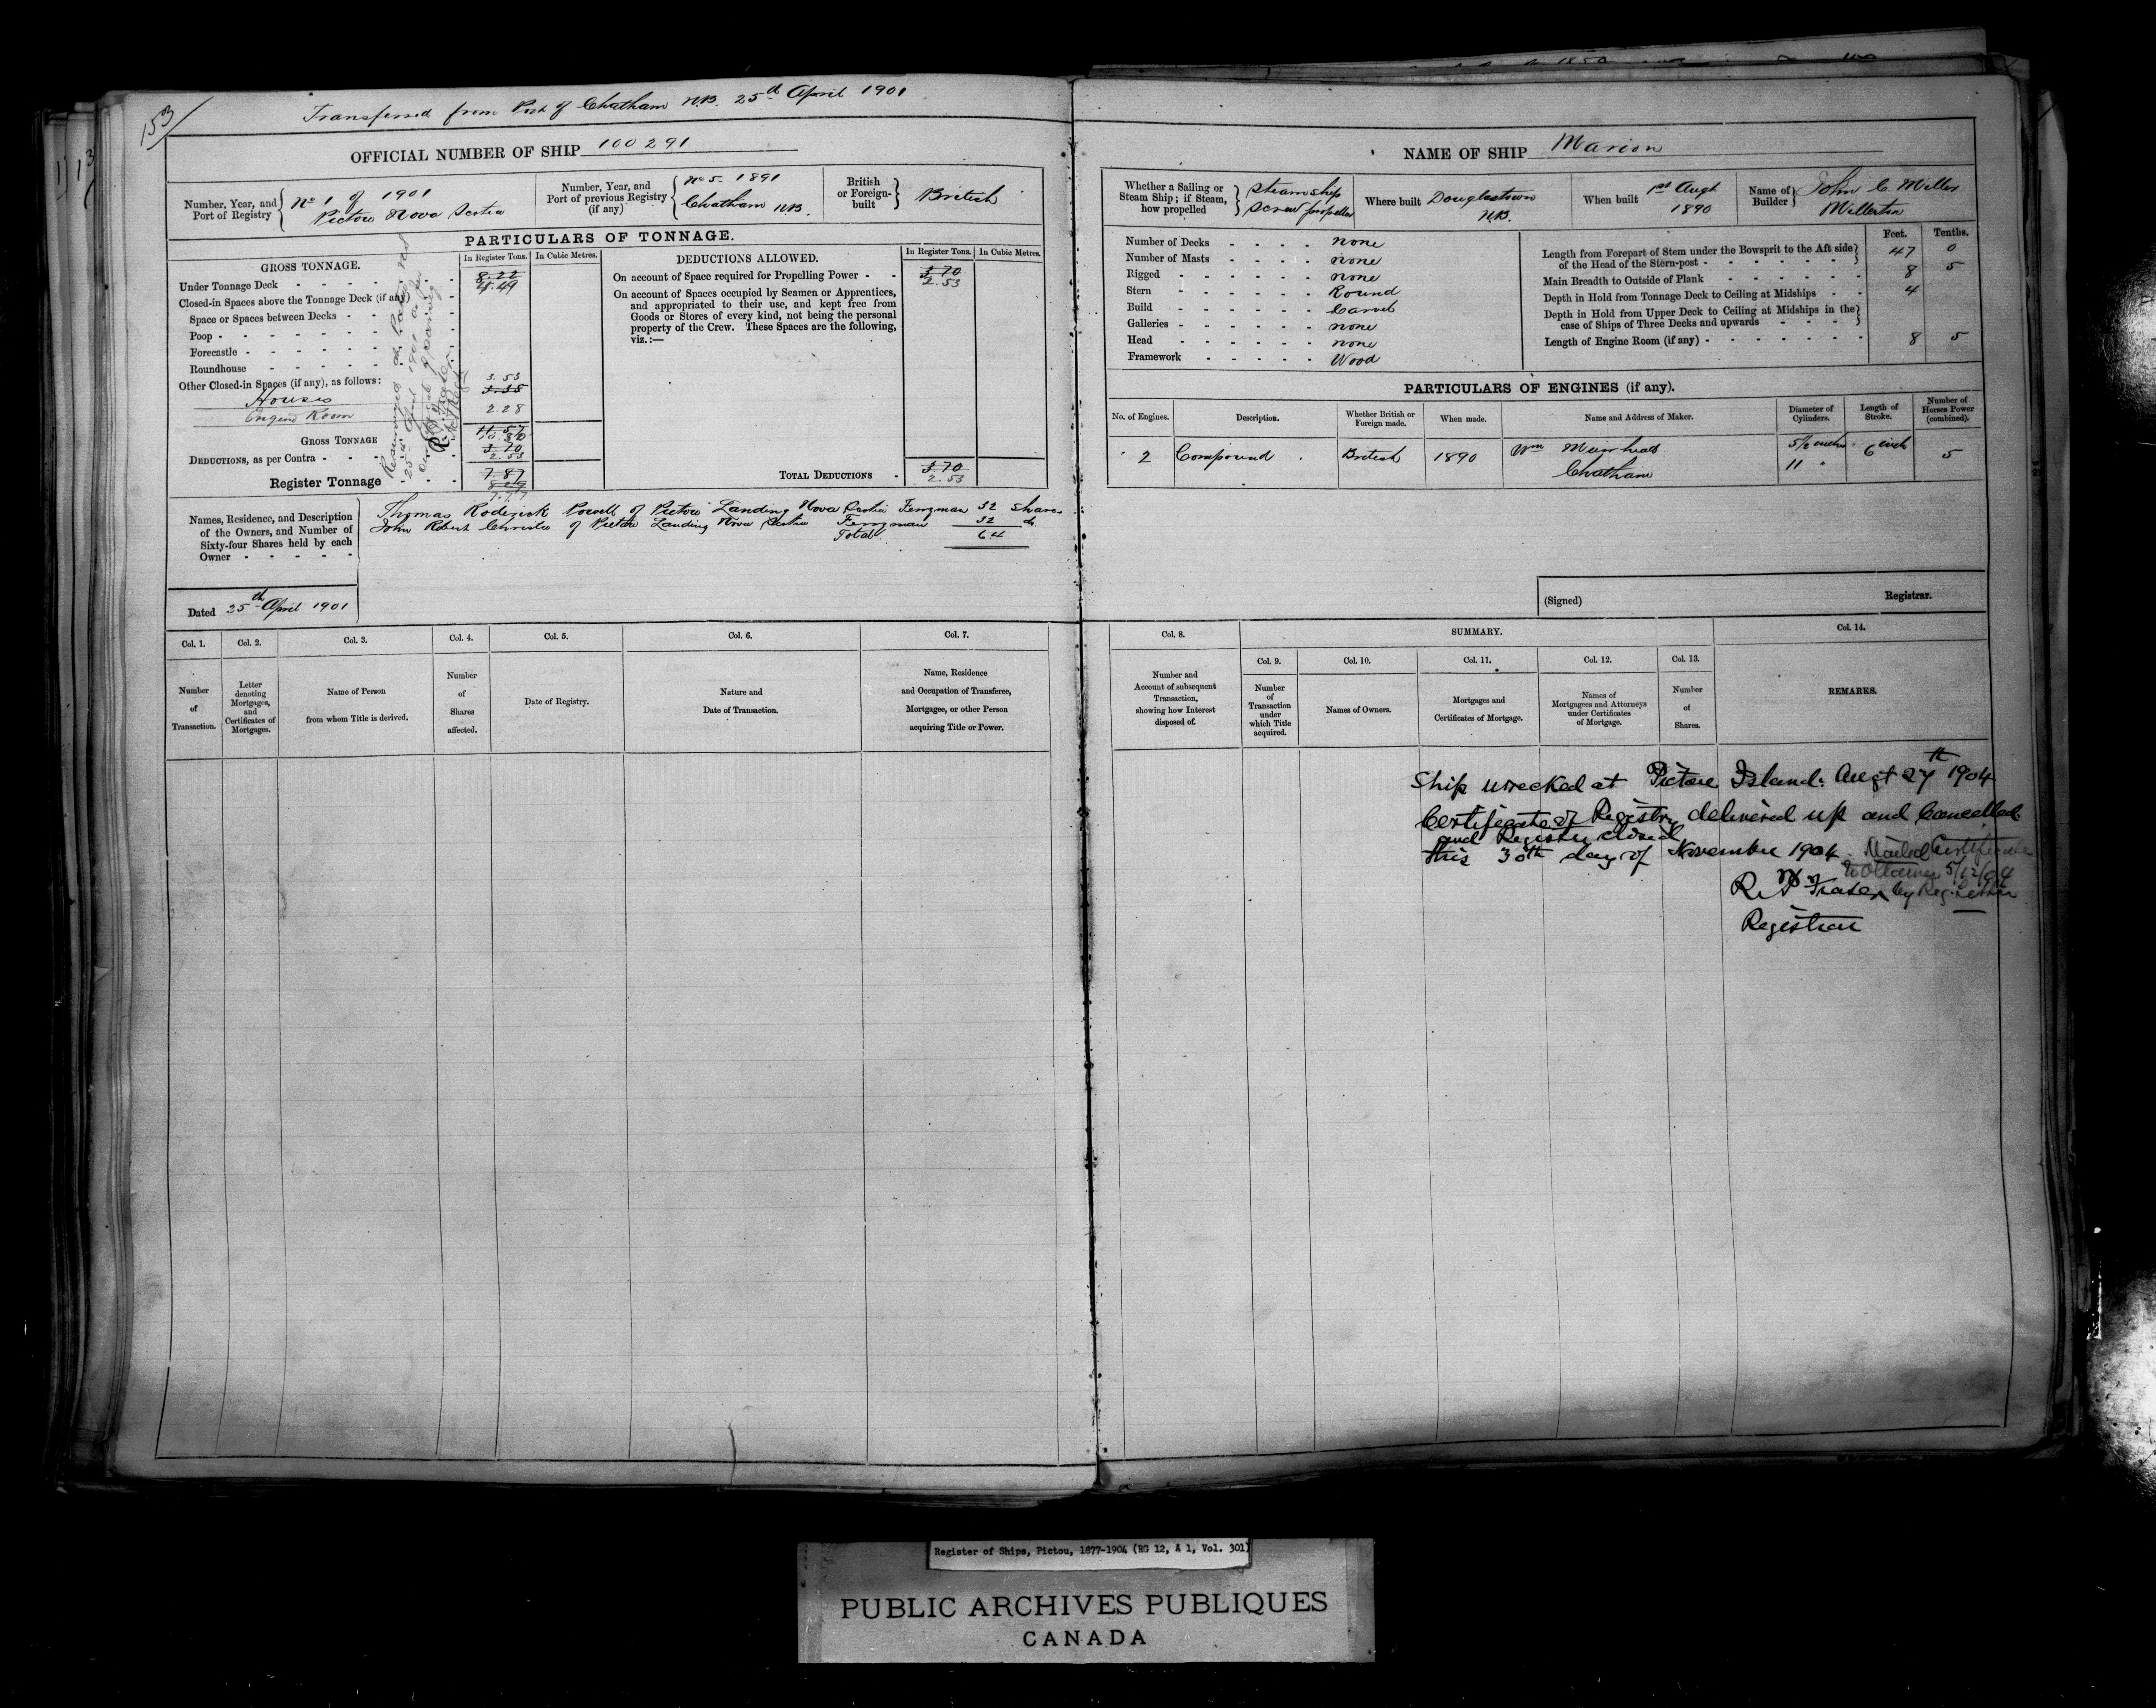 153
Transferred from Port of Chatham N.B. 25th April 1901
OFFICIAL NUMBER OF SHIP 100291
Number, Year, and Port of Registry
No 1 of 1901
Pictou Nova Scotia
Number, Year, and Port of previous Registry (if any)
No 5. 1891
Chatham N.B.
British or Foreign-built
British
PARTICULARS OF TONNAGE.
GROSS TONNAGE.
In Register Tons.
In Cubic Metres.
Under Tonnage Deck
8.22
4.49
Closed-in Spaces above the Tonnage Deck (if any)
Space or Spaces between Decks
Poop
Forecastle
Roundhouse
Other Closed-in Spaces (if any), as follows:
Houses 3.53
3.35
Engine Room 2.28
GROSS TONNAGE 11.57
10.30
DEDUCTIONS, as per Contra 3.70
2.53
Register Tonnage 7.87
DEDUCTIONS ALLOWED.
In Register Tons.
In Cubic Metres.
On account of Space required for Propelling Power
3.70
2.53
On account of Spaces occupied by Seamen or Apprentices,
and appropriated to their use, and kept free from
Goods or Stores of every kind, not being the personal
property of the Crew. These Spaces are the following,
viz.:—
TOTAL DEDUCTIONS 3.70
2.53
Names, Residence, and Description
of the Owners, and Number of
Sixty-four Shares held by each
Owner
Thomas Roderick Powell of Pictou Landing Nova Scotia Ferryman 32 Shares
John Robert Christie of Pictou Landing Nova Scotia Ferryman 32 do
Total 64
Dated 25th April 1901
Col. 1.
Number of Transaction.
Col. 2.
Letter denoting Mortgages, and Certificates of Mortgages.
Col. 3.
Name of Person from whom Title is derived.
Col. 4.
Number of Shares affected.
Col. 5.
Date of Registry.
Col. 6.
Nature and Date of Transaction.
Col. 7.
Name, Residence and Occupation of Transferee, Mortgagee, or other Person acquiring Title or Power.
NAME OF SHIP Marion
Whether a Sailing or Steam Ship; if Steam, how propelled
Steam ship
Screw propeller
Where built Douglastown N.B.
When built 1st Augt 1890
Name of Builder John C. Miller
Millerton
Number of Decks none
Number of Masts none
Rigged none
Stern Round
Build Carvel
Galleries none
Head none
Framework Wood
Feet. Tenths.
Length from Forepart of Stem under the Bowsprit to the Aft side of the Head of the Stern-post 47 0
Main Breadth to Outside of Plank 8 5
Depth in Hold from Tonnage Deck to Ceiling at Midships 4
Depth in Hold from Upper Deck to Ceiling at Midships in the case of Ships of Three Decks and upwards
Length of Engine Room (if any) 8 5
PARTICULARS OF ENGINES (if any).
No. of Engines.
Description.
Whether British or Foreign made.
When made.
Name and Address of Maker.
Diameter of Cylinders.
Length of Stroke.
Number of Horses Power (combined).
2 Compound British 1890 Wm Muirhead 5½ inches 6 inch 5
Chatham 11 "
(Signed) Registrar.
Col. 8.
Number and Account of subsequent Transaction, showing how Interest disposed of.
SUMMARY.
Col. 9.
Number of Transaction under which Title acquired.
Col. 10.
Names of Owners.
Col. 11.
Mortgages and Certificates of Mortgage.
Col. 12.
Names of Mortgagees and Attorneys under Certificates of Mortgage.
Col. 13.
Number of Shares.
Col. 14.
REMARKS.
Ship wrecked at Pictou Island. Augt 27th 1904
Certificate of Registry delivered up and Cancelled
and Registry closed
this 30th day of November 1904. Mailed Certificate
to Ottawa 5/12/04
by Reg. Letter
Fraser
Registrar
Register of Ships, Pictou, 1877-1904 (RG 12, A 1, Vol. 301)
PUBLIC ARCHIVES PUBLIQUES
CANADA